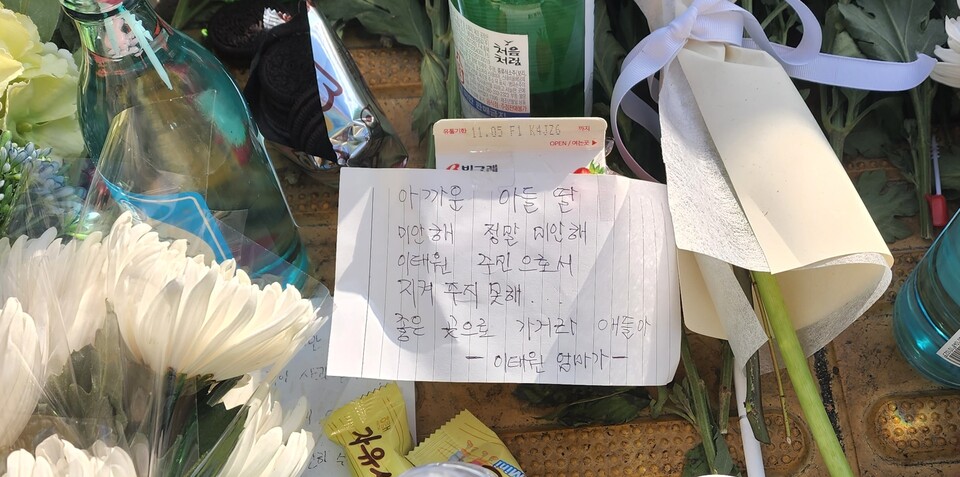 처음
처럼
유통기한 11.05 F1 K4JZ6 까지
OPEN / 여는곳
빙그레
아까운 아들 딸
미안해 정말 미안해
이태원 주민으로서
지켜 주지 못해....
좋은 곳으로 가거라 애들아
- 이태원 엄마가 -
자유